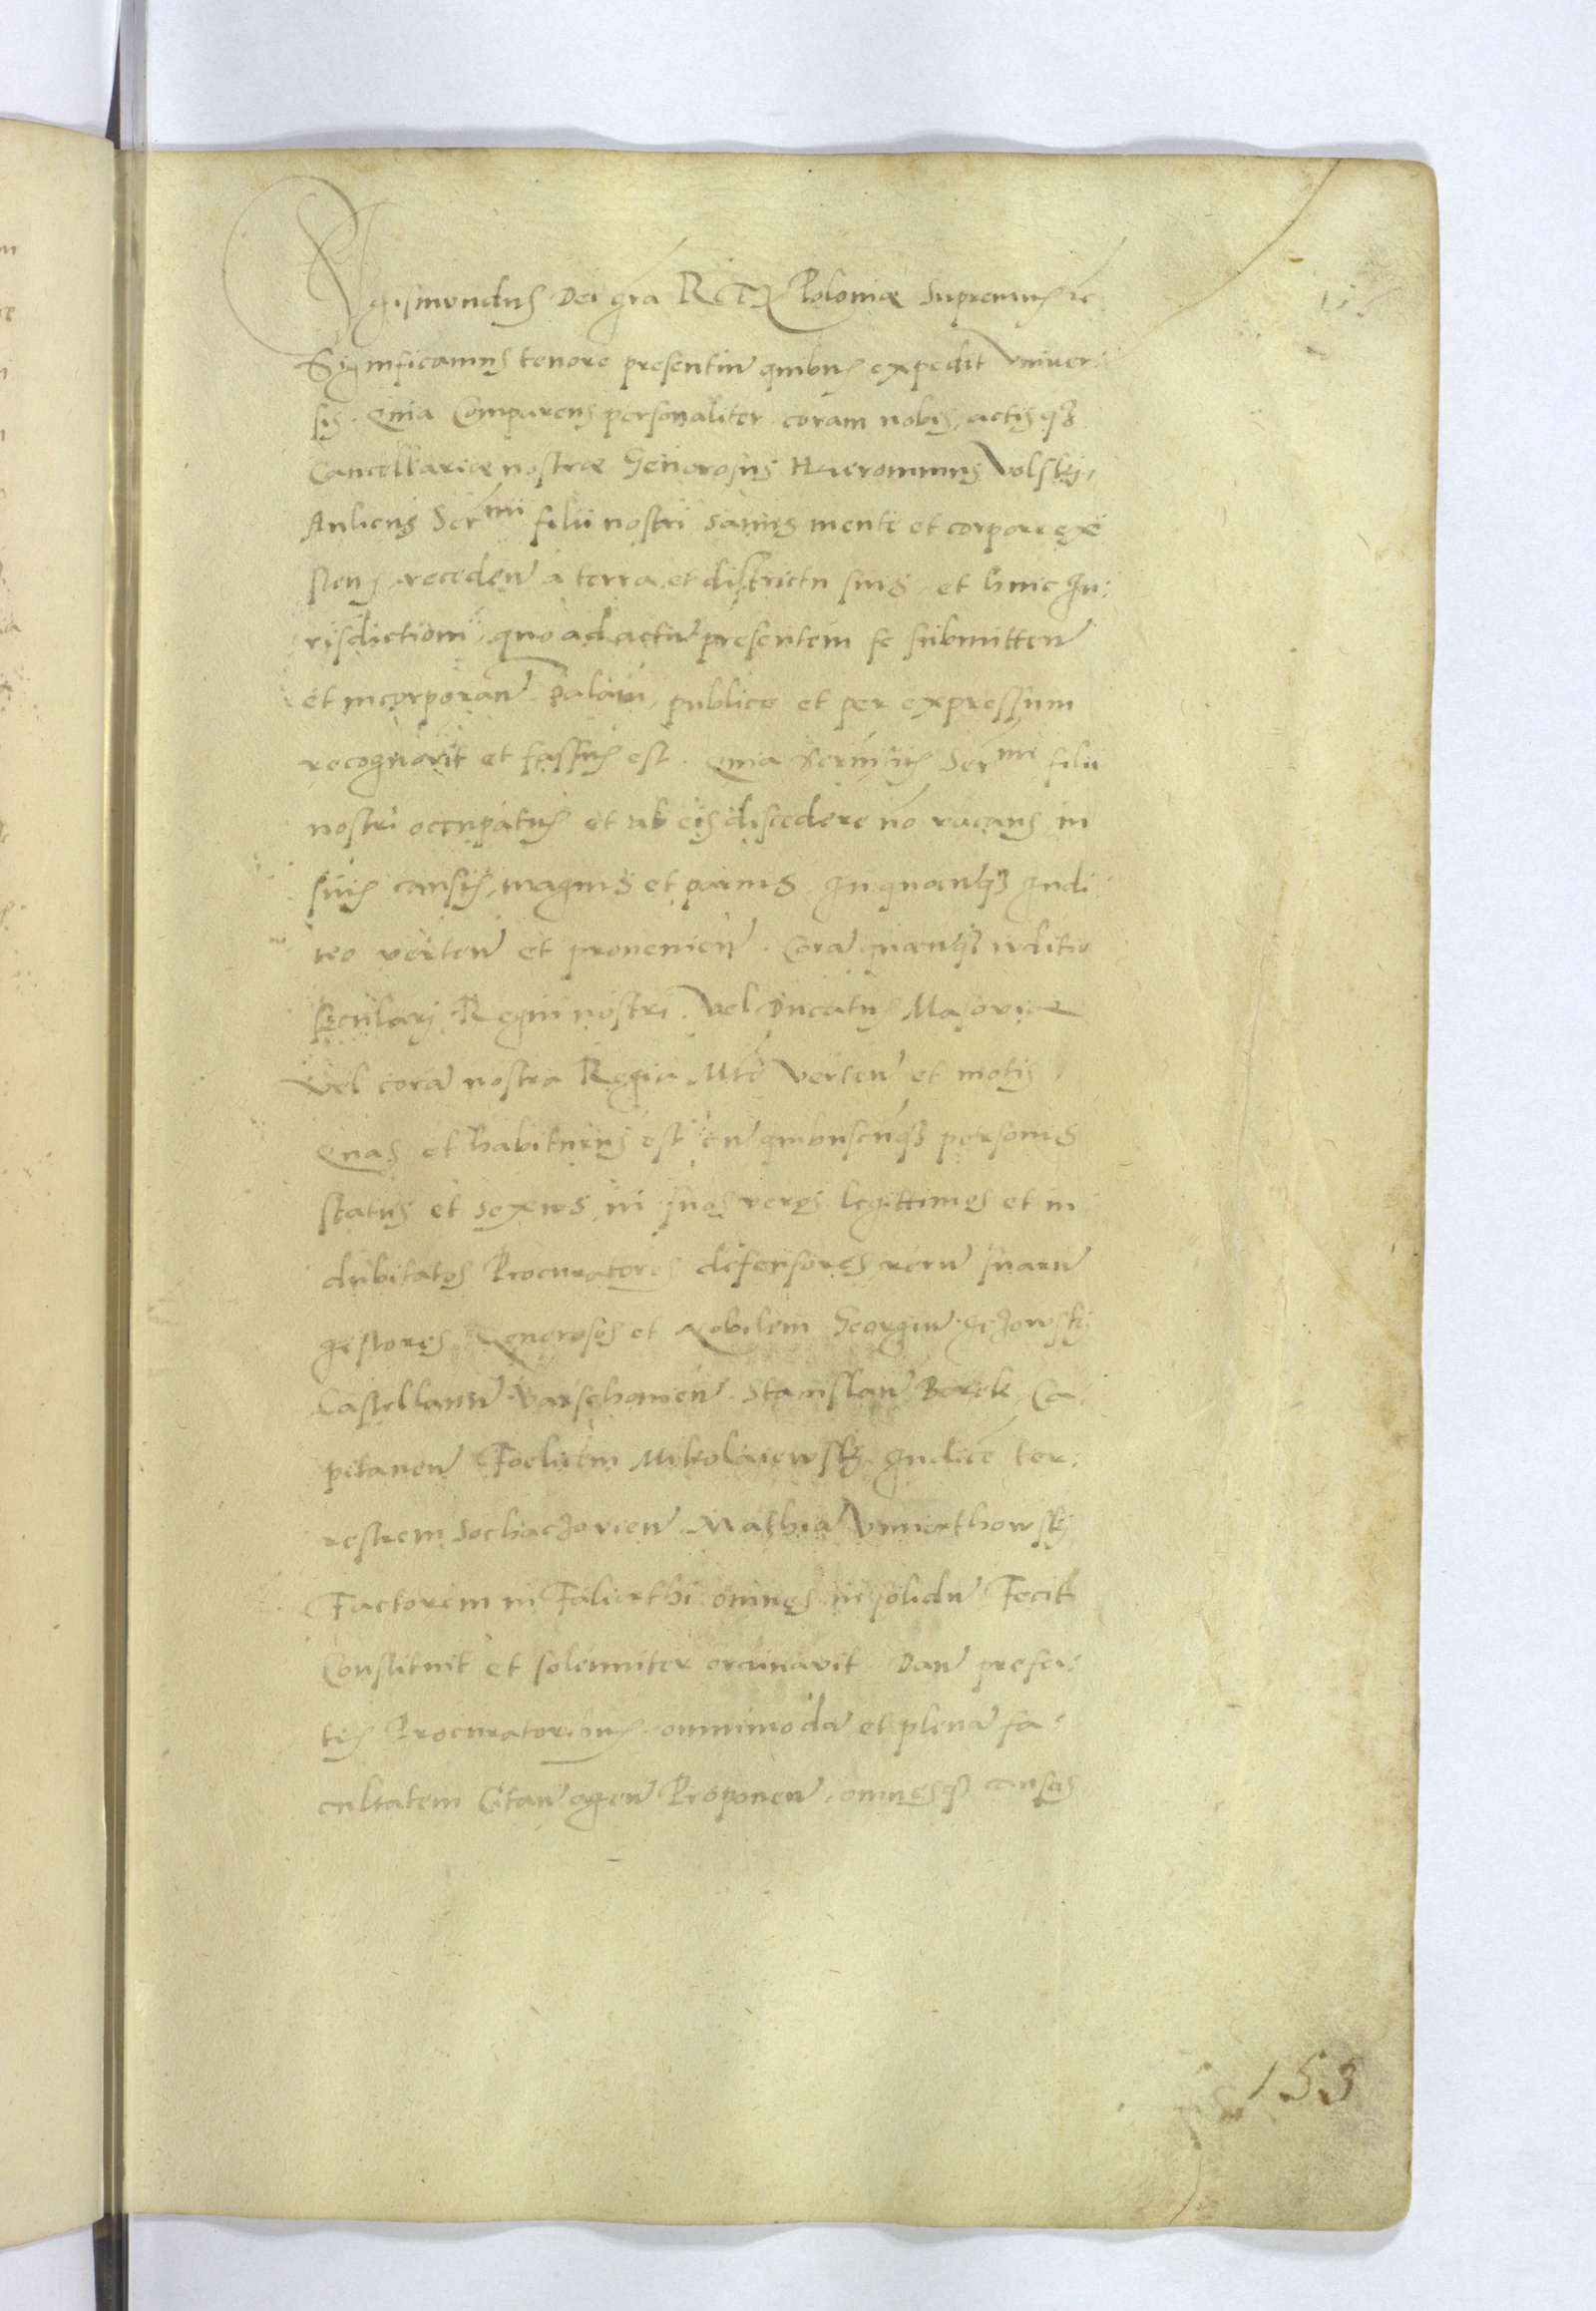 Sigismundus Dei gra̅ REX Poloniæ Supremus etc
Significamus tenore presentiu̅ quibus expedit Univer:
sis. Quia Comparens personaliter coram nobis, actisqz
Cancellariæ nostræ Generosus Hieronimus Volskj,
Aulicus Ser^mi filii nostri sanus mente et corpore exi
stens, receden̅ a terra et districtu suis et huic Iu:
risdictioni, quo ad actu̅ presentem se submitten̅
et incorporan̅. Palam, publice et per expressum
recognovit et fassus est. Quia servitiis Ser^mi filii
nostri occupatus et ab eis discedere no̅ vacans in
suis causis, magnis et parvis In quocu̅qz Iudi
tio verten̅ et provenien̅. Cora̅ quocu̅qz iuditio
seculari Regni nostri. Vel Ducatus Masoviæ
Vel cora̅ nostra Regia Mte̅ verten̅ et motis,
Quas et habiturus est cu̅ quibuscu̅qz personis
status et sexus in suos veros legittimos et in
dubitatos Procuratores defensores, reru̅ suaru̅
gestores, Generosos et Nobilem Georgiu̅
Castellanu̅ Varschovien̅. Stanislau̅ Borek, Ca:
pitaneu̅ Foelicem Mikolaiewskj Iudice̅ ter:
restrem Sochaczovien̅ Mathia̅
Factorem in omnes in solidu̅ Fecit
Constituit et solemniter ordinavit. Dan̅ prefa:
tis Procuratoribus, omnimoda̅ et plena̅ fa:
cultatem Citan̅ agen̅ Proponen̅, omnesqz causas
153